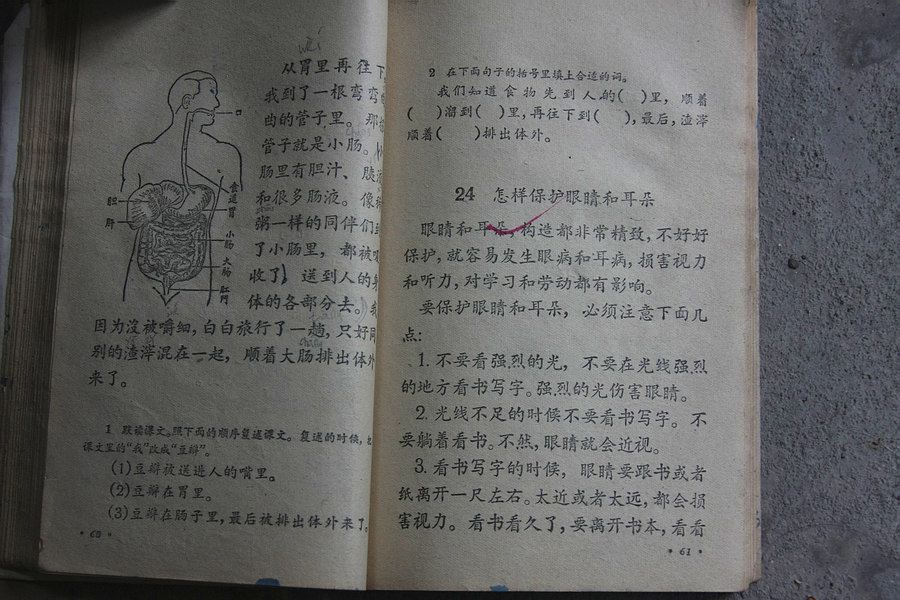 wèi
从胃里再往下
我到了一根弯弯
曲的管子里。那
管子就是小肠。
肠里有胆汁、胰
和很多肠液。像
粥一样的同伴们
了小肠里，都被
收了，送到人的
体的各部分去。我
因为没被嚼细，白白旅行了一趟，只好同
别的渣滓混在一起，顺着大肠排出体外
来了。
口
食道
胃
胆
肝
小肠
大肠
肛门
1 默读课文。照下面的顺序复述课文。复述的时候，
课文里的“我”改成“豆瓣”。
(1)豆瓣被送进人的嘴里。
(2)豆瓣在胃里。
(3)豆瓣在肠子里，最后被排出体外来了。
·60·
2 在下面句子的括号里填上合适的词。
我们知道食物先到人的( )里，顺着
( )溜到( )里，再往下到( )，最后，渣滓
顺着( )排出体外。
24 怎样保护眼睛和耳朵
眼睛和耳朵，构造都非常精致，不好好
保护，就容易发生眼病和耳病，损害视力
和听力，对学习和劳动都有影响。
要保护眼睛和耳朵，必须注意下面几
点：
1. 不要看强烈的光，不要在光线强烈
的地方看书写字。强烈的光伤害眼睛。
2. 光线不足的时候不要看书写字。不
要躺着看书。不然，眼睛就会近视。
3. 看书写字的时候，眼睛要跟书或者
纸离开一尺左右。太近或者太远，都会损
害视力。看书看久了，要离开书本，看看
·61·